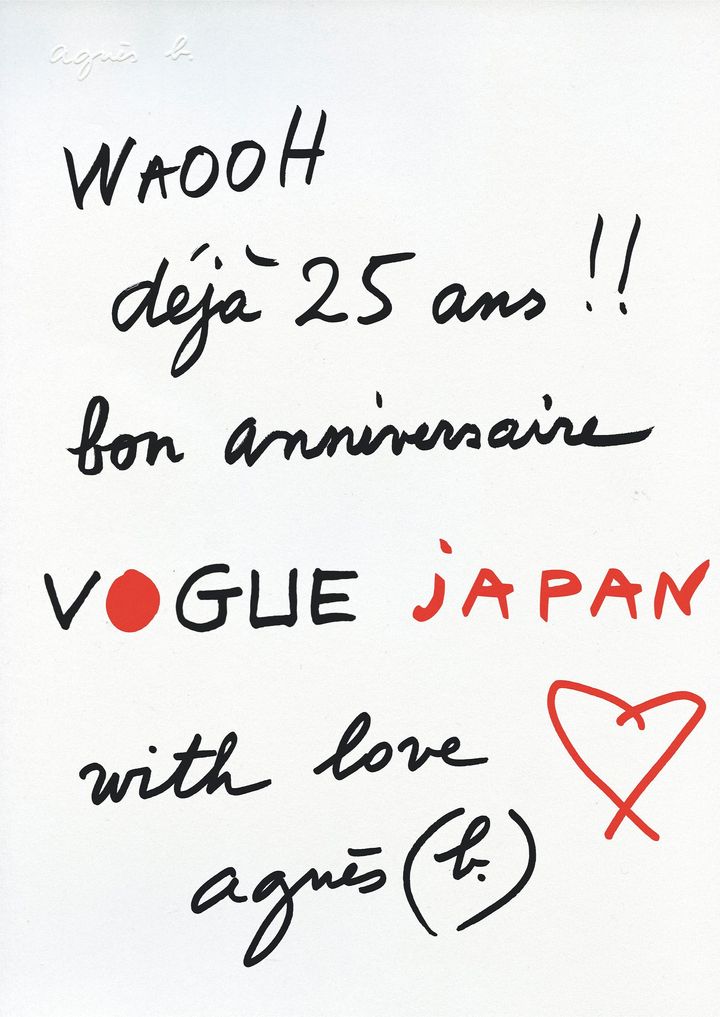 agnès b.
WAOOH
déjà 25 ans !!
bon anniversaire
VOGUE JAPAN
with love
agnès (b.)